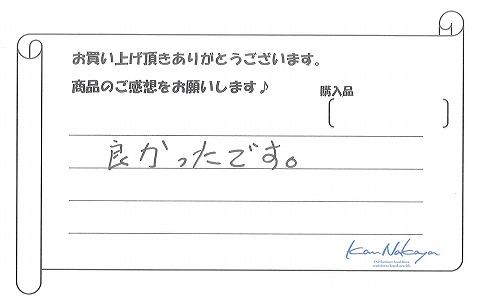 お買い上げ頂きありがとうございます。
商品のご感想をお願いします♪
購入品
良かったです。
KanNakaya